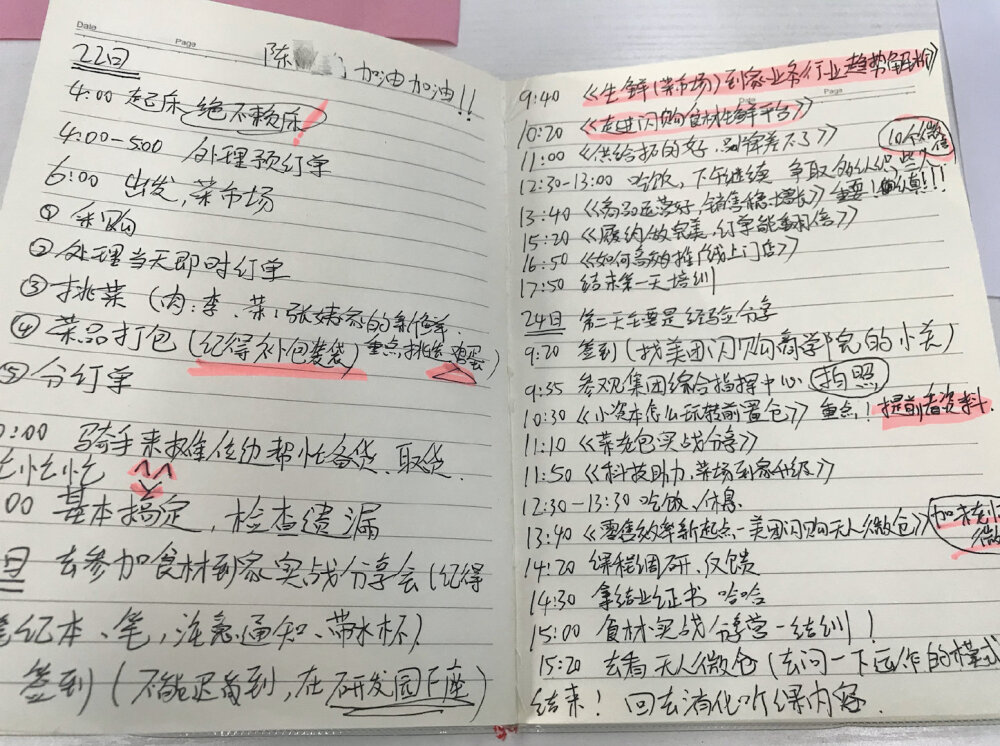 Date
Page
陈 加油加油!!
22日
4:00 起床 绝不赖床!
4:00-5:00 处理预订单
6:00 出发,菜市场
① 采购
② 处理当天即时订单
③ 挑菜 (肉:李、菜:张姨家的新鲜.
④ 菜品打包 (记得补包装袋) 重点挑选 鸡蛋)
⑤ 分订单
0:00 骑手来摊位边帮忙备货、取货
忙忙忙
00 基本搞定,检查遗漏
日 去参加食材到家实战分享会 (记得
笔记本、笔,注意通知、带水杯)
签到 (不能迟到,在研发园F座)
Date
Page
9:40 《生鲜(菜市场)到家业务行业趋势解析》
10:20 《走进闪购食材生鲜平台》
11:00 《供给拓的好,别 差不了》 10个微信
12:30-13:00 吃饭,下午继续 争取多认识些人
13:40 《商品运营好,销售稳增长》 重要!认真!!!
15:20 《履约做完美,订单能翻倍》
16:50 《如何高效推广线上门店》
17:50 结束第一天培训
24日 第二天主要是经验分享
9:20 签到 (找美团闪购商学院的小关)
9:35 参观集团综合指挥中心 拍照
10:30 《小资本怎么玩转前置仓》 重点! 提前看资料.
11:10 《菜老包实战分享》
11:50 《科技助力,菜场到家升级》
12:30-13:30 吃饭、休息
13:40 《零售效率新起点-美团闪购无人微仓》 加
微
14:20 课程调研、反馈
14:30 拿结业证书 哈哈
15:00 食材实战分享营-结训!
15:20 去看无人微仓 (去问一下运作的模式
结束! 回去消化听课内容.